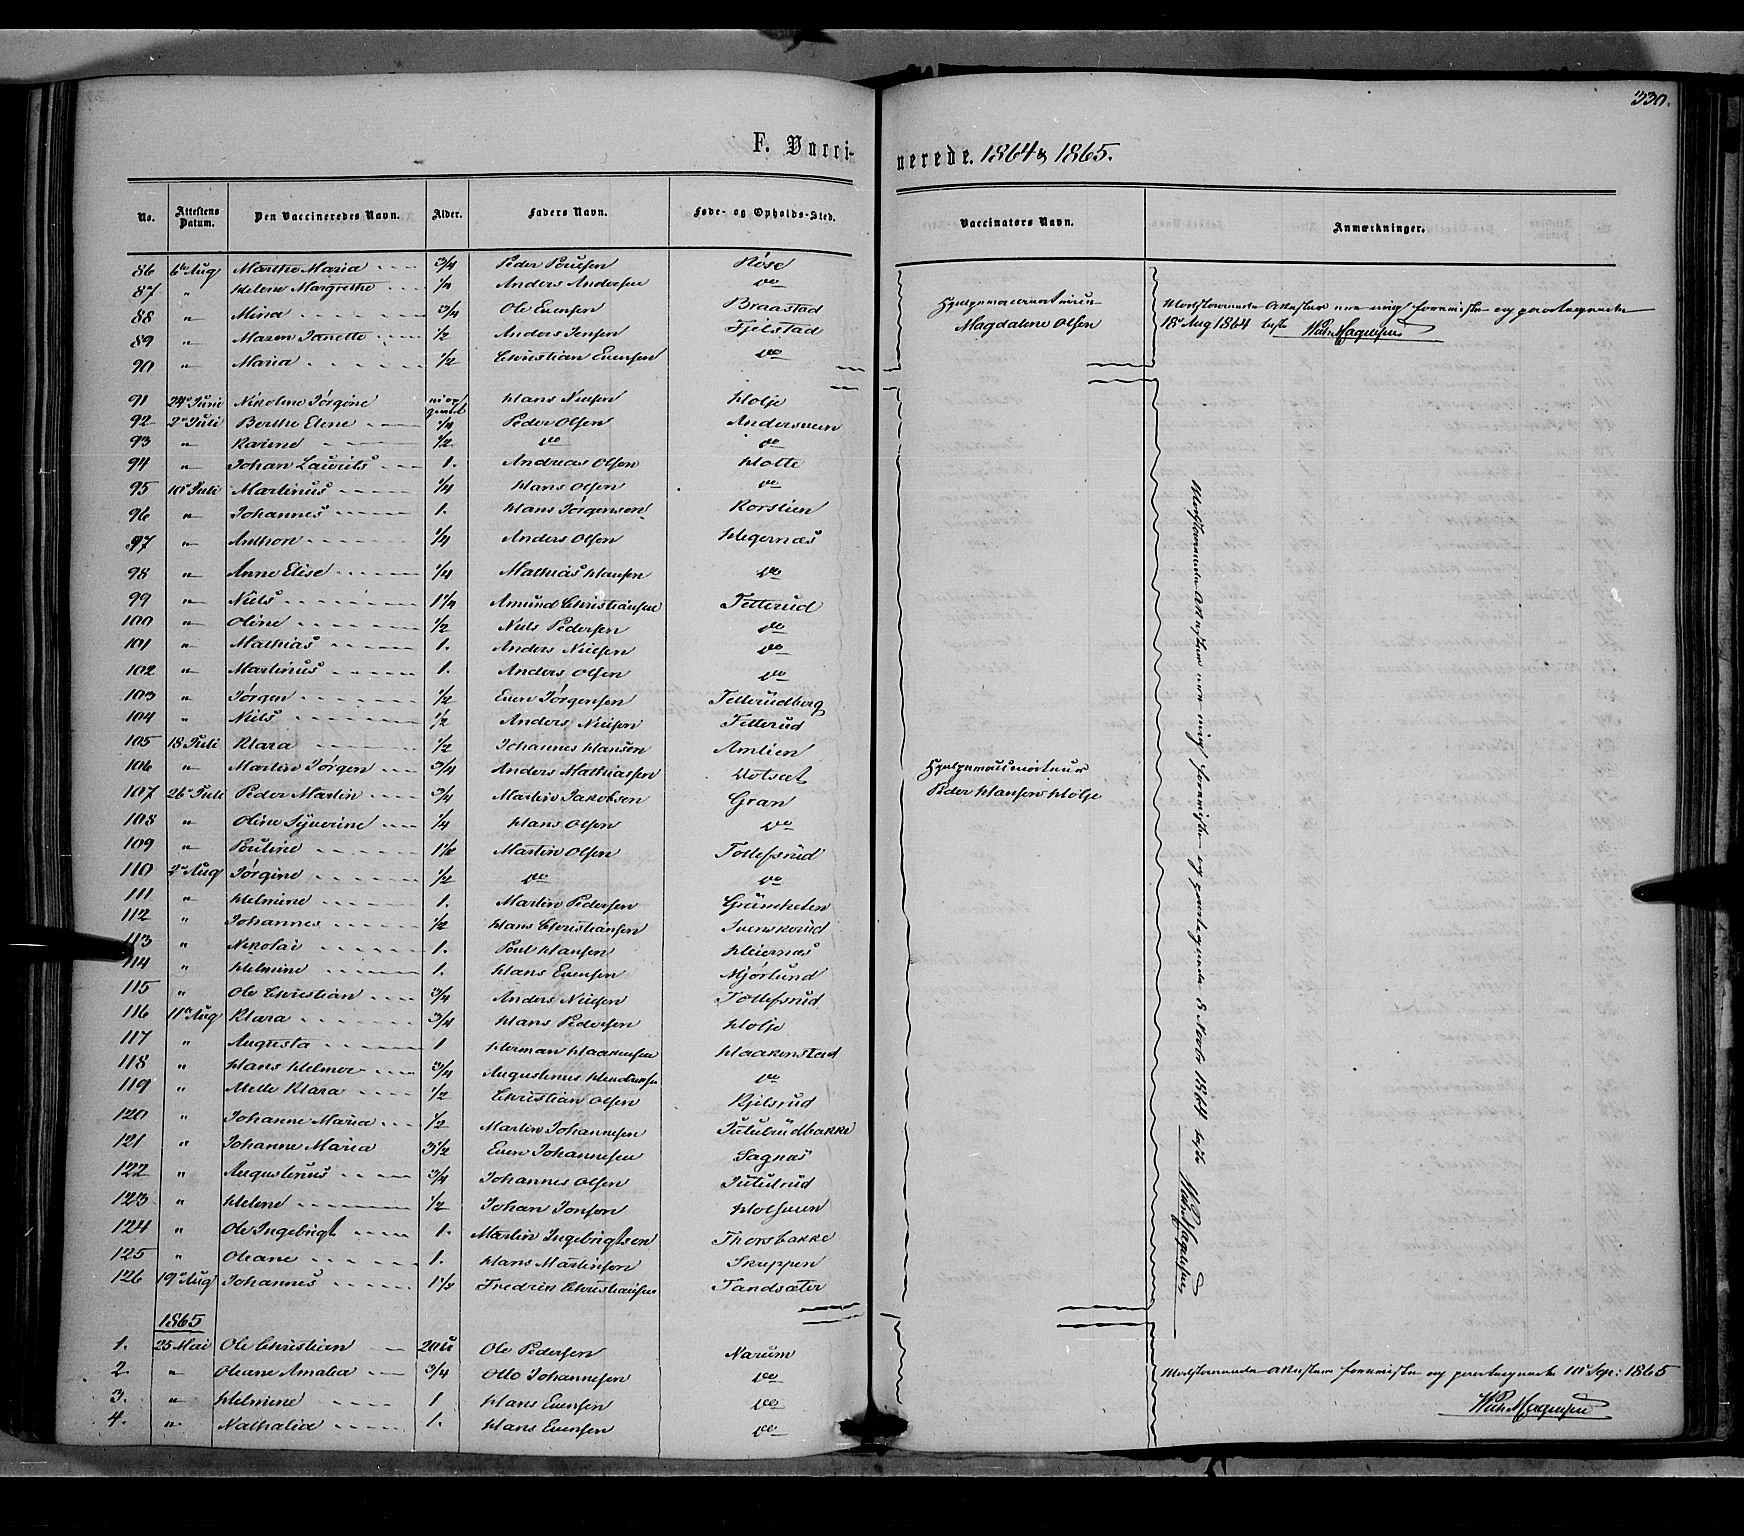 330.
F. Vacci-
nerede. 1864 & 1865.
No. Attestens Datum. Den Vaccineredes Navn. Alder. Faders Navn. Føde- og Opholds-Sted. Vaccinators Navn. Anmærkninger.
86 6te Aug Marthe Maria 3/4 Peder Poulsen Røise
87 " Helene Margrethe Anders Andersen do
88 " Mina 3/4 Ole Evensen Braastad
89 " Maren Janette 1/2 Anders Jensen Fjelstad
Magdalene Olsen
18 Aug 1864
90 " Maria 1/2 Christian Evensen do
91 24 Juni Nikoline Jørgine Hans Nielsen Holje
92 2 Juli Berthe Elene 1/4 Peder Olsen
93 " Karine 1/2 do do
94 " Johan Laurits 1. Andreas Olsen Hotte
95 10 Juli Martinus 1/4 Hans Olsen do
96 " Johannes 1. Hans Jørgensen Korslien
97 " Anthon 1/4 Anders Olsen Hegernæs
98 " Anne Elise 1/4 Mathias Hansen do
99 " Niels 1 1/4 Amund Christiansen Tetterud
100 " Oline 1/2 Niels Pedersen do
101 " Mathias 1. Anders Nielsen do
102 " Martinus 1. Anders Olsen do
103 " Jørgen 1/2 Even Jørgensen Tetterudberg
104 " Niels 1/2 Anders Nielsen Tetterud
105 18 Juli Klara 1/2 Johannes Hansen Amlien
106 " Martin Jørgen 3/4 Anders Mathiassen
107 26 Juli Peder Martin 3/4 Martin Jakobsen Gran
Peder Hansen Holje
108 " Oline Syverine 1/4 Hans Olsen do
109 " Pouline 1 1/2 Martin Olsen Tollefsrud
110 2 Aug Jørgine 1/2 do do
111 " Helmine 1. Martin Pedersen
112 " Johannes 1/2 Hans Christiansen Svenskerud
113 " Nikolai 1. Poul Hansen Heiernæs
114 " Helmine 1. Hans Evensen Mjørlund
115 " Ole Christian 3/4 Anders Nielsen Tollefsrud
116 11 Aug Klara 3/4 Hans Pedersen Holje
117 " Augusta 1 Herman Haakensen Haakenstad
118 " Hans Helmer 3/4 Augustinus do
119 " Mette Klara 1/2 Christian Olsen Kjelsrud
120 " Johanne Maria 1/2 Martin Johannesen Jutulrudbakke
121 " Johanne Maria 3 1/2 Even Johannesen Sagnæs
122 " Augustinus 3/4 Johannes Olsen Jutulrud
123 " Helene 1/2 Johan Jonsen
124 " Ole Ingebrigt 1. Martin Ingebrigtsen Thorsbakke
125 " Oleane 1. Hans Martinsen Skeppen
126 19 Aug Johannes 1 1/3 Fredrik Christiansen Sandsæter
8 Novbr 1864
1865
1. 25 Mai Ole Christian Ole Pedersen Narum
2. " Oleane Amalia 3/4 Otto Johannesen do
3. " Helmine 1 Hans Evensen do
4. " Nathalia 1. Hans Evensen do
Sep: 1865